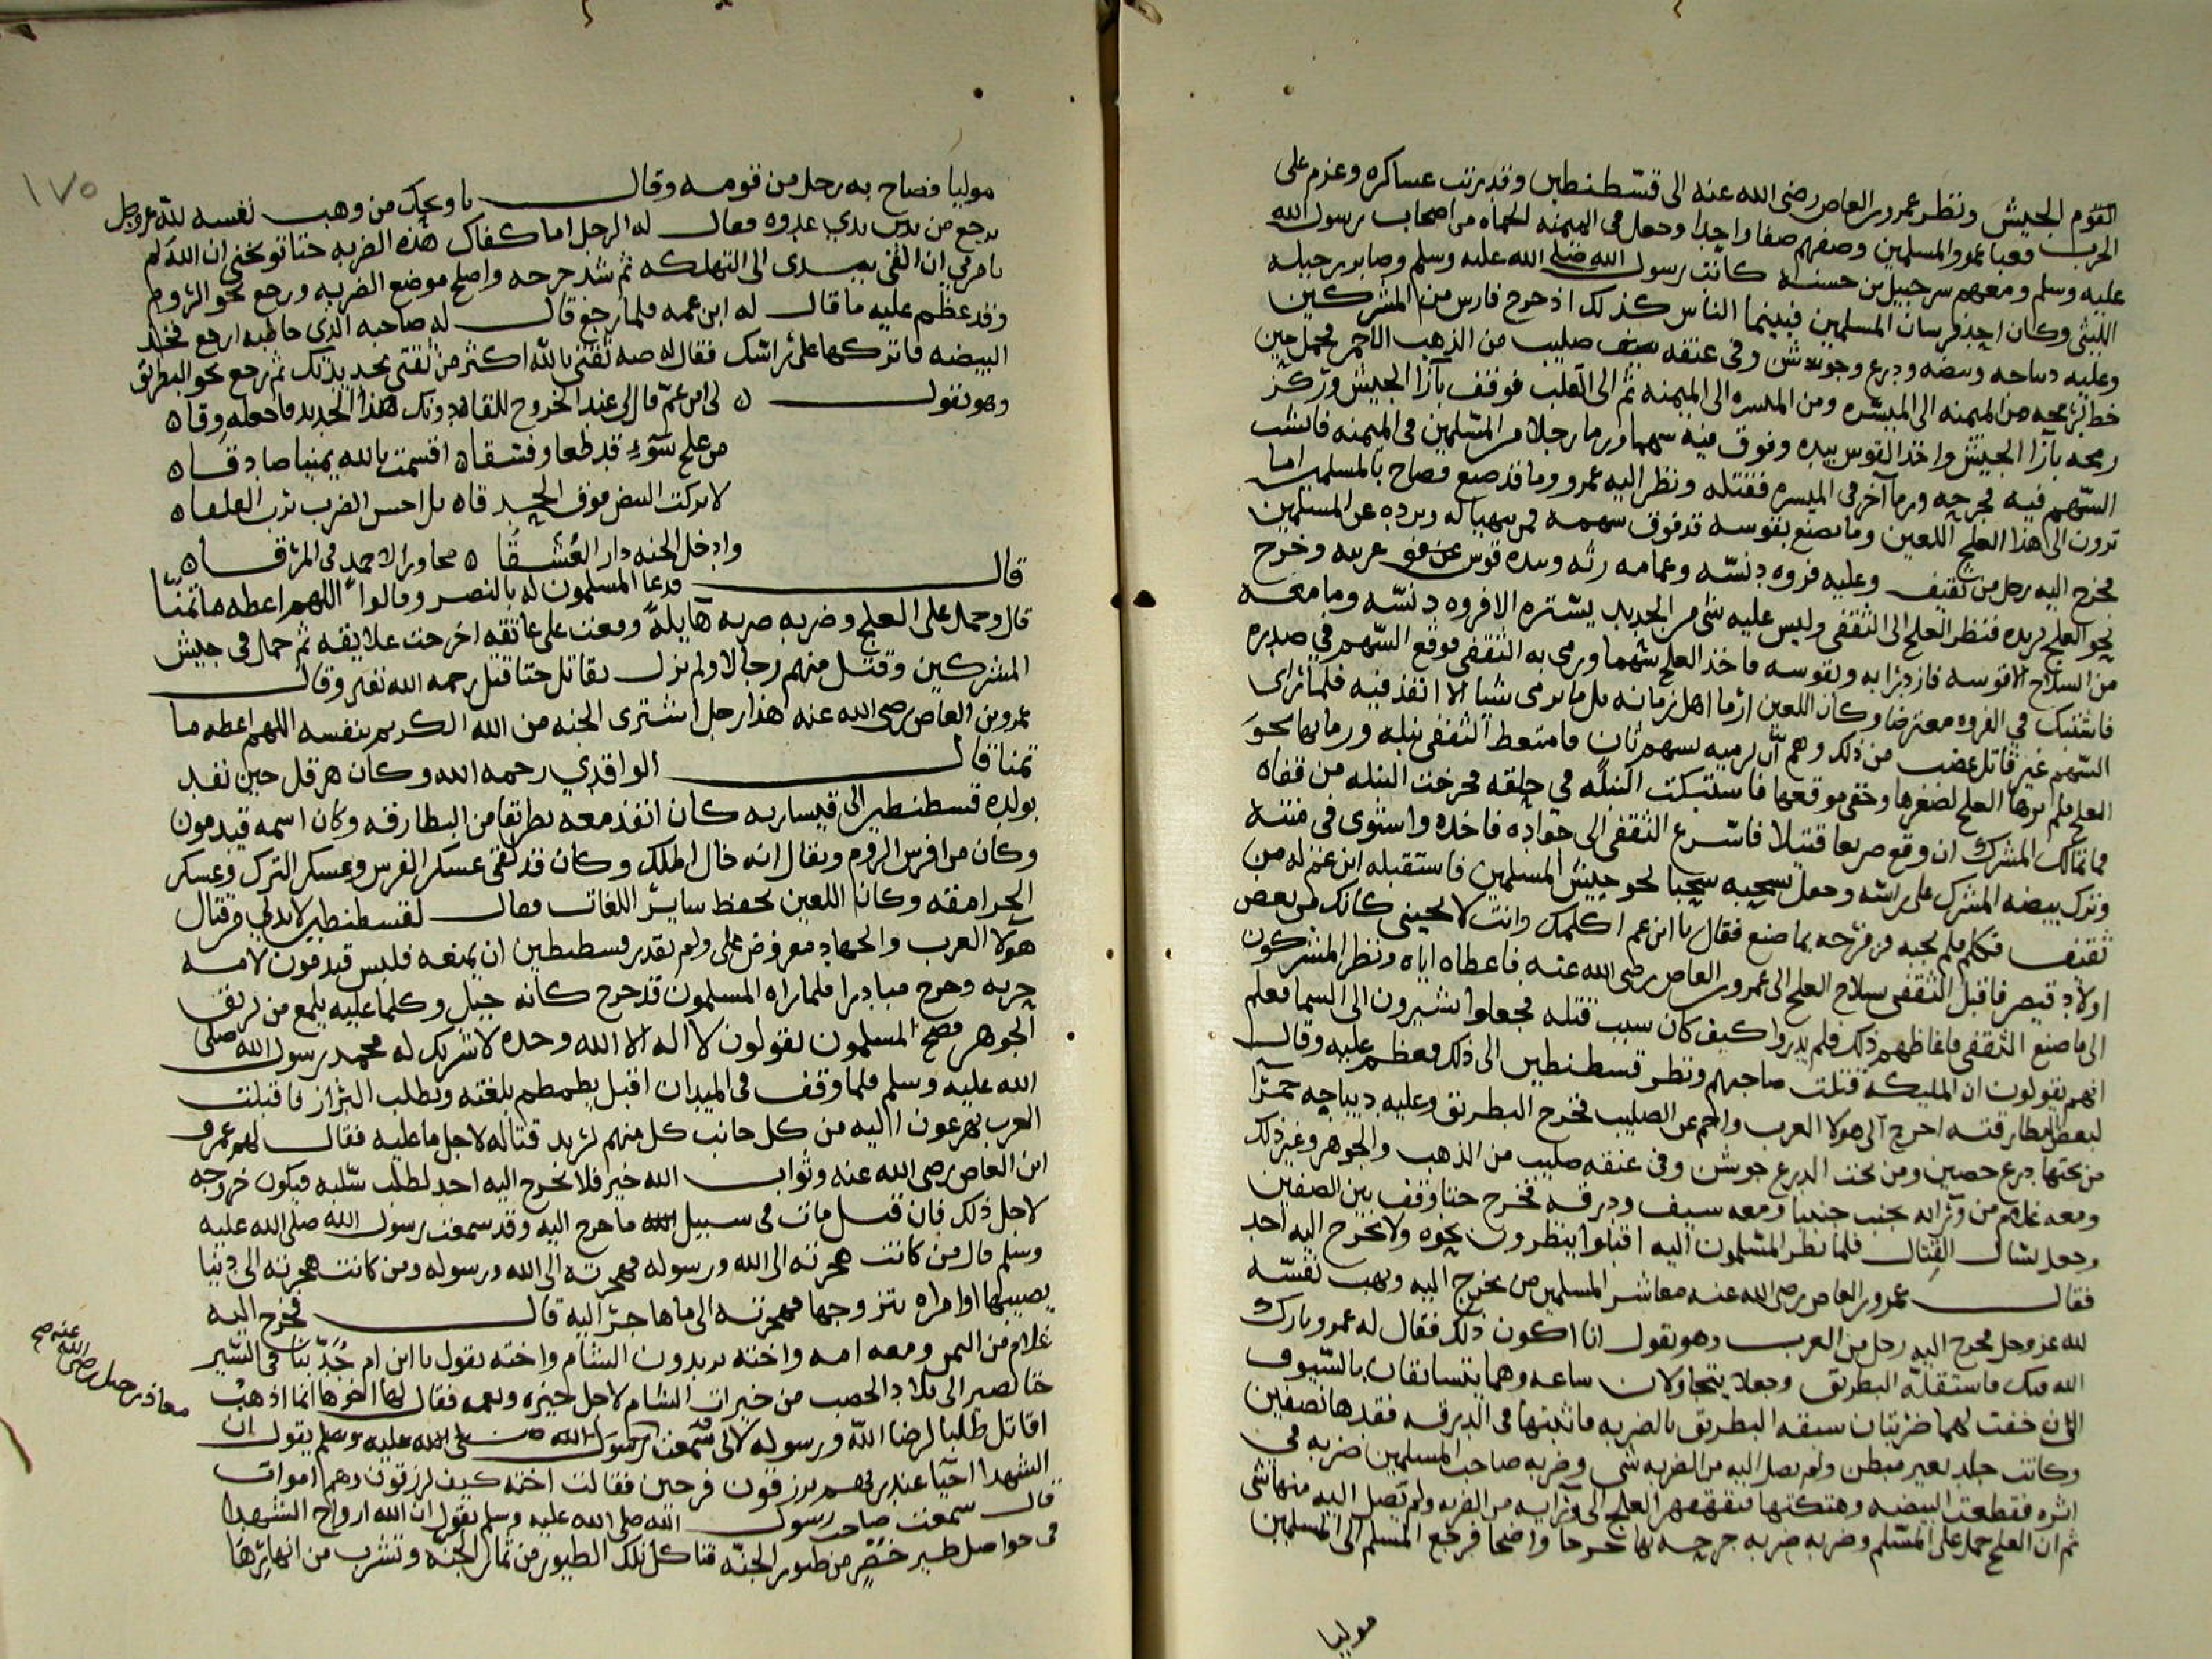 القوم الجيش ونظر عمرو بن العاص رضى الله عنه الى قسطنطين وقد رتب عساكره وعزم على
الحرب فعبا عمرو المسلمين وصفهم صفا واحدا وجعل فى الميمنه الحماه من اصحاب رسول الله
عليه وسلم ومعهم سرحبيل بن حسنه كاتب رسول الله صلى الله عليه وسلم وصابور بن حبيله
الليثى وكان احد فرسان المسلمين فبينما الناس كذلك اذ خرج فارس من المشركين
وعليه ديباجه وبيضه ودرع وجوشن وفى عنقه صليب من الذهب الاحمر فحمل حين
خطر برمحه من الميمنه الى الميسره ومن الميسره الى الميمنه ثم الى القلب فوقف بآزا الجيش وركز
رمحه بآزا الجيش واخذ القوس بيده وفوق فيه سهما ورما رجلا من المسلمين فى الميمنه فانشب
السهم فيه فجرحه ورما آخر فى الميسره فقتله ونظر اليه عمرو وما قد صنع فصاح بالمسلمين اما
ترون الى هذا العلج اللعين وما يصنع بقوسه قد فوق سهمه فمن يهيا له ويرده عن المسلمين
فخرج اليه رجل من ثقيف وعليه فروه دنسه وعمامه رثه وبيده قوس عربيه وخرج
نحو العلج يريده فنظر العلج الى الثقفى وليس عليه شى من الحديد يستره الا فروه دنسه وما معه
من السلاح الا قوسه فازدرا به وبقوسه فاخذ العلج سهما ورمى به الثقفى فوقع السهم فى صدره
فاشتبك فى الفروه معترضا وكان اللعين ارما اهل زمانه بل ما يرمى شيا الا انفذ فيه فلما راى
السهم غير قاتل غضب من ذلك وهم ان يرميه بسهم ثان فامتعط الثقفى نبله ورما بها نحو
العلج فلم يرها العلج لصغرها وخفى موقعها فاستبكت النبله فى حلقه فخرجت النبله من قفاه
فما تمالك المشرك ان وقع صريعا قتيلا فاسرع الثقفى الى جواده فاخذه واستوى فى متنه
وترك بيضه المشرك على راسه وجعل يسحبه سحبا نحو جيش المسلمين فاستقبله ابن عم له من
ثقيف فكلم فلم يجبه من فرحه بما صنع فقال يا ابن عم اكلمك وانت لا تجيبنى كانك من بعض
اولاد قيصر فاقبل الثقفى بسلاح العلج الى عمرو بن العاص رضى الله عنه فاعطاه اياه ونظر المشركون
الى ما صنع الثقفى فاغاظهم ذلك فلم يدروا كيف كان سبب قتله فجعلوا يشيرون الى السما فعلم
انهم يقولون ان المليكه قتلت صاحبهم ونظر قسطنطين الى ذلك فعظم عليه وقال
لبعض البطارقه اخرج الى هولا العرب واحم عن الصليب فخرج البطريق وعليه ديباجه حمرا
من تحتها درع حصين ومن تحت الدرع جوشن وفى عنقه صليب من الذهب والجوهر وغير ذلك
ومعه غلام من ورايه يجنب جنيبا ومعه سيف ودرقه فخرج حتا وقف بين الصفين
وجعل يسال القتال فلما نظر المسلمون اليه اقبلوا ينظرون نحوه ولا يخرج اليه احد
فقال عمرو بن العاص رضى الله عنه معاشر المسلمين من يخرج اليه ويهب نفسه
لله عز وجل فخرج اليه رجل من العرب وهو يقول انا اكون ذلك فقال له عمرو بارك
الله فيك فاستقبله البطريق وجعلا يتجاولان ساعه وهما يتسابقان بالسيوف
الى ان خفت لهما ضربتان سبقه البطريق بالضربه فاثبتها فى الدرقه فقدها نصفين
وكانت جلد بعير مبطن ولم يصل اليه من الضربه شى وضربه صاحب المسلمين ضربه فى
اثره فقطعت البيضه وهتكتها فتقهقر العلج الى ورايه من الضربه ولم يصل اليه منها شى
ثم ان العلج حمل على المسلم وضربه ضربه جرحه بها جرحا واضحا فرجع المسلم الى المسلمين
موليا
١٧٥
موليا فصاح به رجل من قومه وقال يا ويحك من وهب نفسه لله عز وجل
يرجع من بين يدي عدوه فقال له الرجل اما كفاك هذه الضربه حتا توبخنى ان الله لم
يامرنى ان القى بيدى الى التهلكه ثم شد جرحه واصلح موضع الضربه ورجع نحو الروم
وقد عظم عليه ما قال له ابن عمه فلما رجع قال له صاحبه الذى خاطبه ارجع فخذ
البيضه فاتركها على راسك فقال له صه ثقتى بالله اكثر من ثقتى بحديدتك ثم رجع نحو البطريق
وهو يقول لى ابن عم قال لى عند الخروج للقاه دونك هذا الحديد فاجعله وقاه
من علج سوء قد طغا وفسقاه اقسمت بالله يمينا صادقاه
لا تركت البيض فوق الحدقاه بل احسن الضرب العلقاه
وادخل الجنه دار العشقا مجاورا لاحمد فى المرتقاه
قال فدعا المسلمون له بالنصر وقالوا اللهم اعطه ما تمنا
قال وحمل على العلج وضربه ضربه هايلة وقعت على عاتقه اخرجت علايقه ثم حمل فى جيش
المشركين وقتل منهم رجالا ولم يزل يقاتل حتا قتل رحمه الله تعالى وقال
عمرو بن العاص رضى الله عنه هذا رجل اشترى الجنه من الله الكريم بنفسه اللهم اعطه ما
تمنا قال الواقدي رحمه الله وكان هرقل حين نفد
بولده قسطنطين الى قيساريه كان انفذ معه بطريقا من البطارقه وكان اسمه قيدمون
وكان من افرس الروم ويقال انه خال الملك وكان قد لقى عسكر الفرس وعسكر الترك وعسكر
الجرامقه وكان اللعين يحفظ ساير اللغات فقال لقسطنطين لابد لي من قتال
هولا العرب والجهاد مفروض على ولم يقدر قسطنطين ان يمنعه فلبس قيدمون لامه
حربه وخرج مبادرا فلما راه المسلمون قد خرج كانه جبل وكلما عليه يلمع من بريق
الجوهر فضج المسلمون يقولون لا اله الا الله وحده لا شريك له محمد رسول الله صلى
الله عليه وسلم فلما وقف فى الميدان اقبل يطمطم بلغته ويطلب البراز فاقبلت
العرب يهرعون اليه من كل جانب كل منهم يريد قتاله لاجل ما عليه فقال لهم عمرو
ابن العاص رضى الله عنه وثواب الله خير فلا يخرج اليه احد لطلب سلبه فيكون خروجه
لاجل ذلك فان قتل مات فى سبيل ما خرج اليه وقد سمعت رسول الله صلى الله عليه
وسلم قال من كانت هجرته الى الله ورسوله فهجرته الى الله ورسوله ومن كانت هجرته الى دنيا
يصيبها او امراه يتزوجها فهجرته الى ما هاجر اليه قال فخرج اليه
غلام من اليمن ومعه امه واخته يريدون الشام واخته تقول يا ابن ام جد بنا فى السير
حتا نصير الى بلاد الخصب من خيرات الشام لاجل خبزه ونعمه فقال لها اخوها انما اذهب
اقاتل طلبا لرضا الله ورسوله لانى قد سمعت يقول ان
الشهدا احيا عند ربهم يرزقون فرحين فقالت اخته كيف يرزقون وهم اموات
قال سمعت صاحب رسول الله صلى الله عليه وسلم يقول ان الله ارواح الشهدا
فى حواصل طير خضر من طيور الجنه فتاكل تلك الطيور من ثمار الجنه وتشرب من انهارها
معاذ بن جبل رضى الله عنه صح